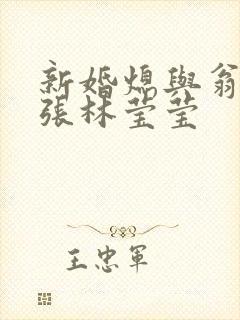 新婚熄與翁
張林莹莹
王忠軍